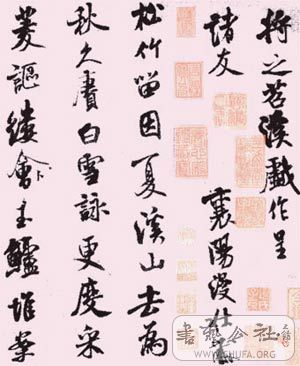 將之苕溪戲作呈
諸友
襄陽漫仕黻
松竹留因夏溪山去為
秋久賡白雪詠更度采
菱謳縷會玉鱸堆案
書藝公社
WWW.SHUFA.ORG